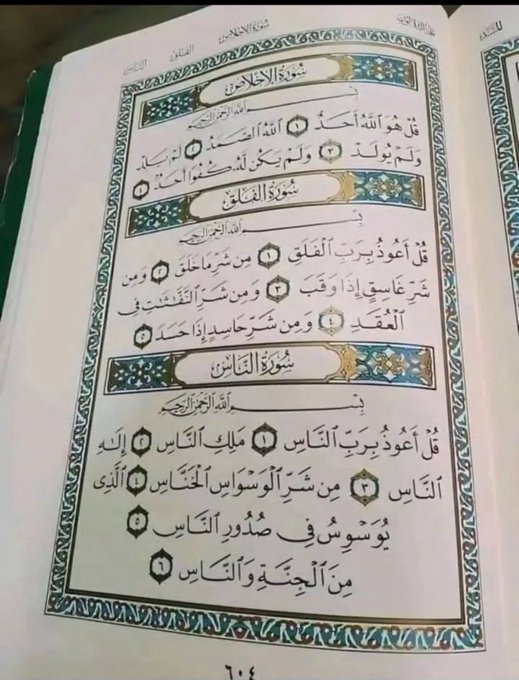 سُورَةُ الإِخْلَاصِ الفَلَقِ النَّاسِ
سُورَةُ الإِخْلَاصِ
بِسْمِ ٱللَّهِ ٱلرَّحْمَٰنِ ٱلرَّحِيمِ
قُلْ هُوَ ٱللَّهُ أَحَدٌ ١ ٱللَّهُ ٱلصَّمَدُ ٢ لَمْ يَلِدْ
وَلَمْ يُولَدْ ٣ وَلَمْ يَكُن لَّهُۥ كُفُوًا أَحَدٌۢ ٤
سُورَةُ الفَلَقِ
بِسْمِ ٱللَّهِ ٱلرَّحْمَٰنِ ٱلرَّحِيمِ
قُلْ أَعُوذُ بِرَبِّ ٱلْفَلَقِ ١ مِن شَرِّ مَا خَلَقَ ٢ وَمِن
شَرِّ غَاسِقٍ إِذَا وَقَبَ ٣ وَمِن شَرِّ ٱلنَّفَّٰثَٰتِ فِى
ٱلْعُقَدِ ٤ وَمِن شَرِّ حَاسِدٍ إِذَا حَسَدَ ٥
سُورَةُ النَّاسِ
بِسْمِ ٱللَّهِ ٱلرَّحْمَٰنِ ٱلرَّحِيمِ
قُلْ أَعُوذُ بِرَبِّ ٱلنَّاسِ ١ مَلِكِ ٱلنَّاسِ ٢ إِلَٰهِ
ٱلنَّاسِ ٣ مِن شَرِّ ٱلْوَسْوَاسِ ٱلْخَنَّاسِ ٤ ٱلَّذِى
يُوَسْوِسُ فِى صُدُورِ ٱلنَّاسِ ٥
مِنَ ٱلْجِنَّةِ وَٱلنَّاسِ ٦
٦٠٤